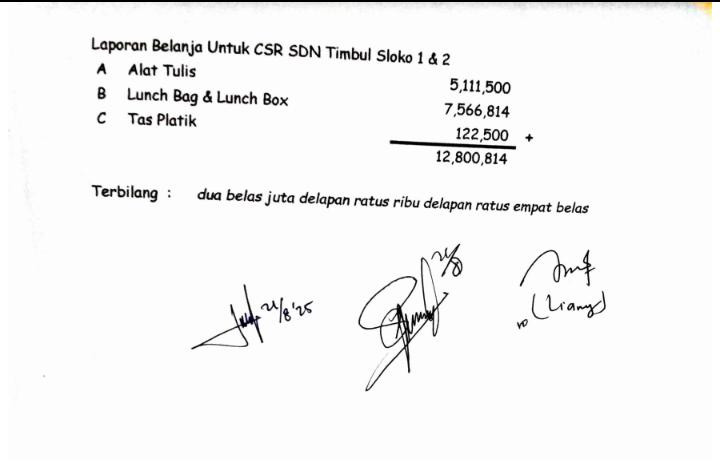 Laporan Belanja Untuk CSR SDN Timbul Sloko 1 & 2
A Alat Tulis 5,111,500
B Lunch Bag & Lunch Box 7,566,814
C Tas Platik 122,500 +
12,800,814
Terbilang : dua belas juta delapan ratus ribu delapan ratus empat belas
21/8'25
21/8
(Liang)